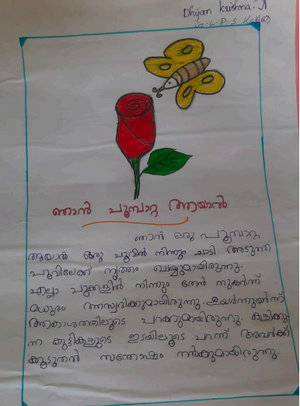 Dhyan Krishna. A
ഞാൻ പൂമ്പാറ്റ ആയാൽ
ഞാൻ ഒരു പൂമ്പാറ്റ
ആയാൽ ഒരു പൂവിൽ നിന്നും ചാടി അടുത്ത
പൂവിലേക്ക് നൃത്തം വെയ്ക്കുമായിരുന്നു.
എല്ലാ പൂക്കളിൽ നിന്നും തേൻ നുകർന്ന്
മധുരം ആസ്വദിക്കുമായിരുന്നു. ഉയർന്നുയർന്ന്
ആകാശത്തിലൂടെ പറക്കുമായിരുന്നു. കളിക്കു
ന്ന കുട്ടികളുടെ ഇടയിലൂടെ പറന്ന് അവർക്ക്
കൂടുതൽ സന്തോഷം നൽകുമായിരുന്നു.